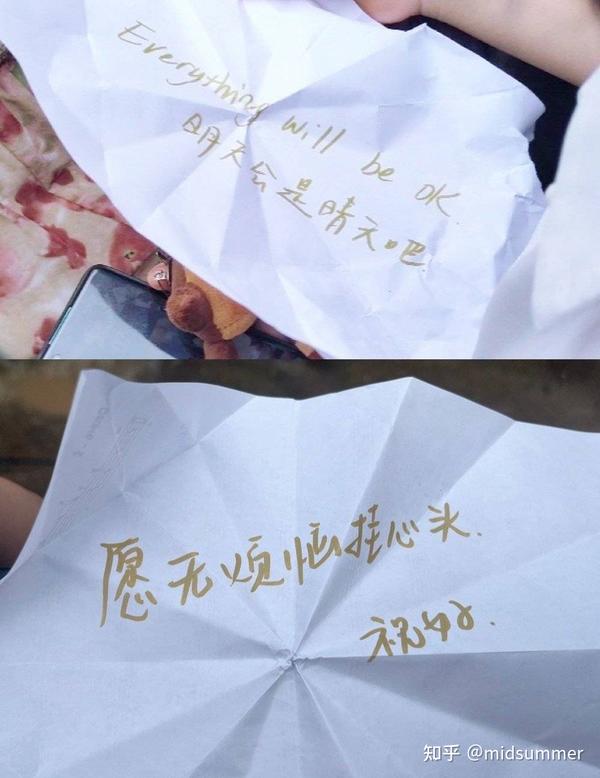 Everything will be OK.
明天会是晴天吧.
愿无烦恼挂心头.
祝好.
知乎 @midsummer